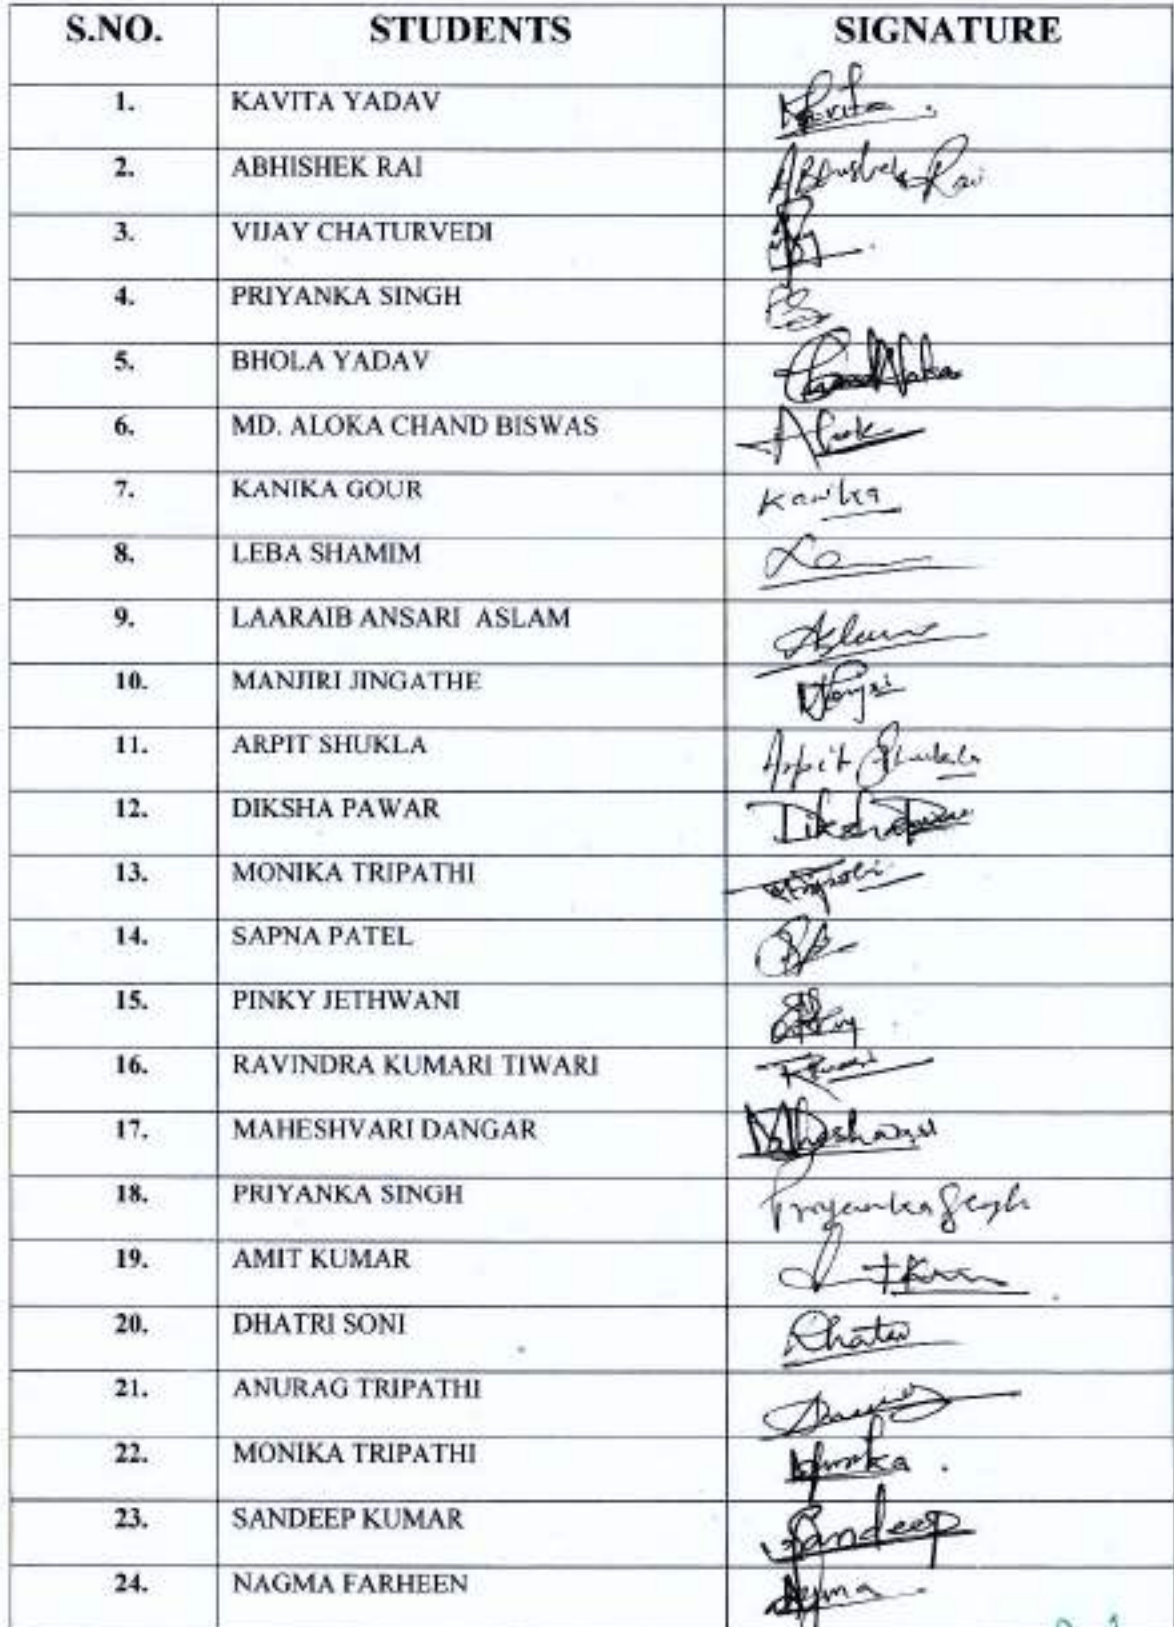 S.NO. STUDENTS SIGNATURE
1. KAVITA YADAV Kavita
2. ABHISHEK RAI Abhishek Rai
3. VIJAY CHATURVEDI
4. PRIYANKA SINGH PS
5. BHOLA YADAV
6. MD. ALOKA CHAND BISWAS Alok
7. KANIKA GOUR Kanika
8. LEBA SHAMIM
9. LAARAIB ANSARI ASLAM Aslam
10. MANJIRI JINGATHE
11. ARPIT SHUKLA Arpit Shukla
12. DIKSHA PAWAR Diksha
13. MONIKA TRIPATHI
14. SAPNA PATEL
15. PINKY JETHWANI
16. RAVINDRA KUMARI TIWARI
17. MAHESHVARI DANGAR Maheshwari
18. PRIYANKA SINGH Priyanka Singh
19. AMIT KUMAR
20. DHATRI SONI Dhatri
21. ANURAG TRIPATHI
22. MONIKA TRIPATHI Monika
23. SANDEEP KUMAR Sandeep
24. NAGMA FARHEEN